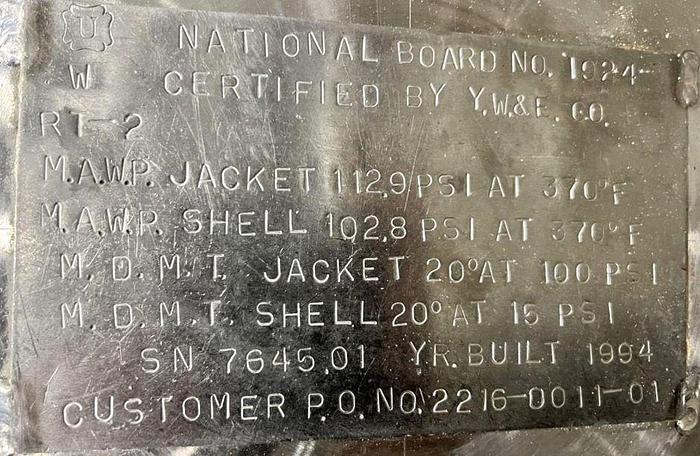 U NATIONAL BOARD NO. 1924
W CERTIFIED BY Y.W.& E. CO.
RT-2
M.A.W.P. JACKET 112.9 PSI AT 370°F
M.A.W.P. SHELL 102.8 PSI AT 370°F
M. D. M. T. JACKET 20° AT 100 PSI
M. D. M. T. SHELL 20° AT 15 PSI
SN 7645.01 YR. BUILT 1994
CUSTOMER P.O. NO. 2216-0011-01